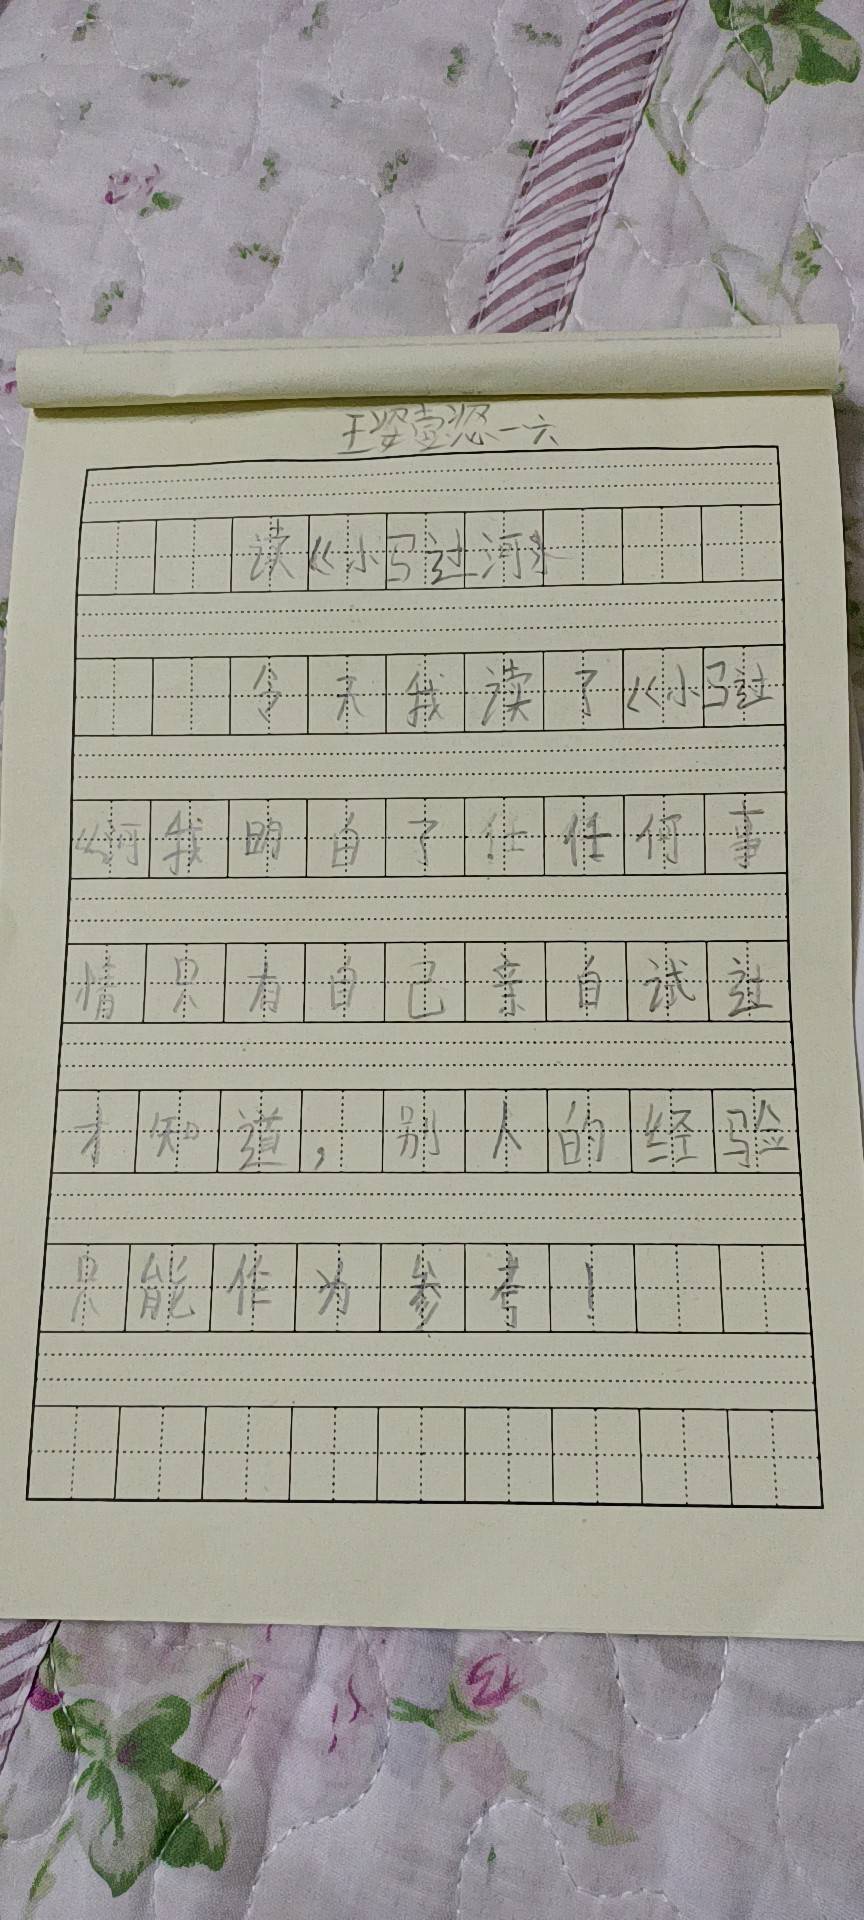 王姿壹一六
读《小马过河》
今天我读了《小马过
《河我明白了任任何事
情只有自己亲自试过
才知道，别人的经验
只能作为参考！